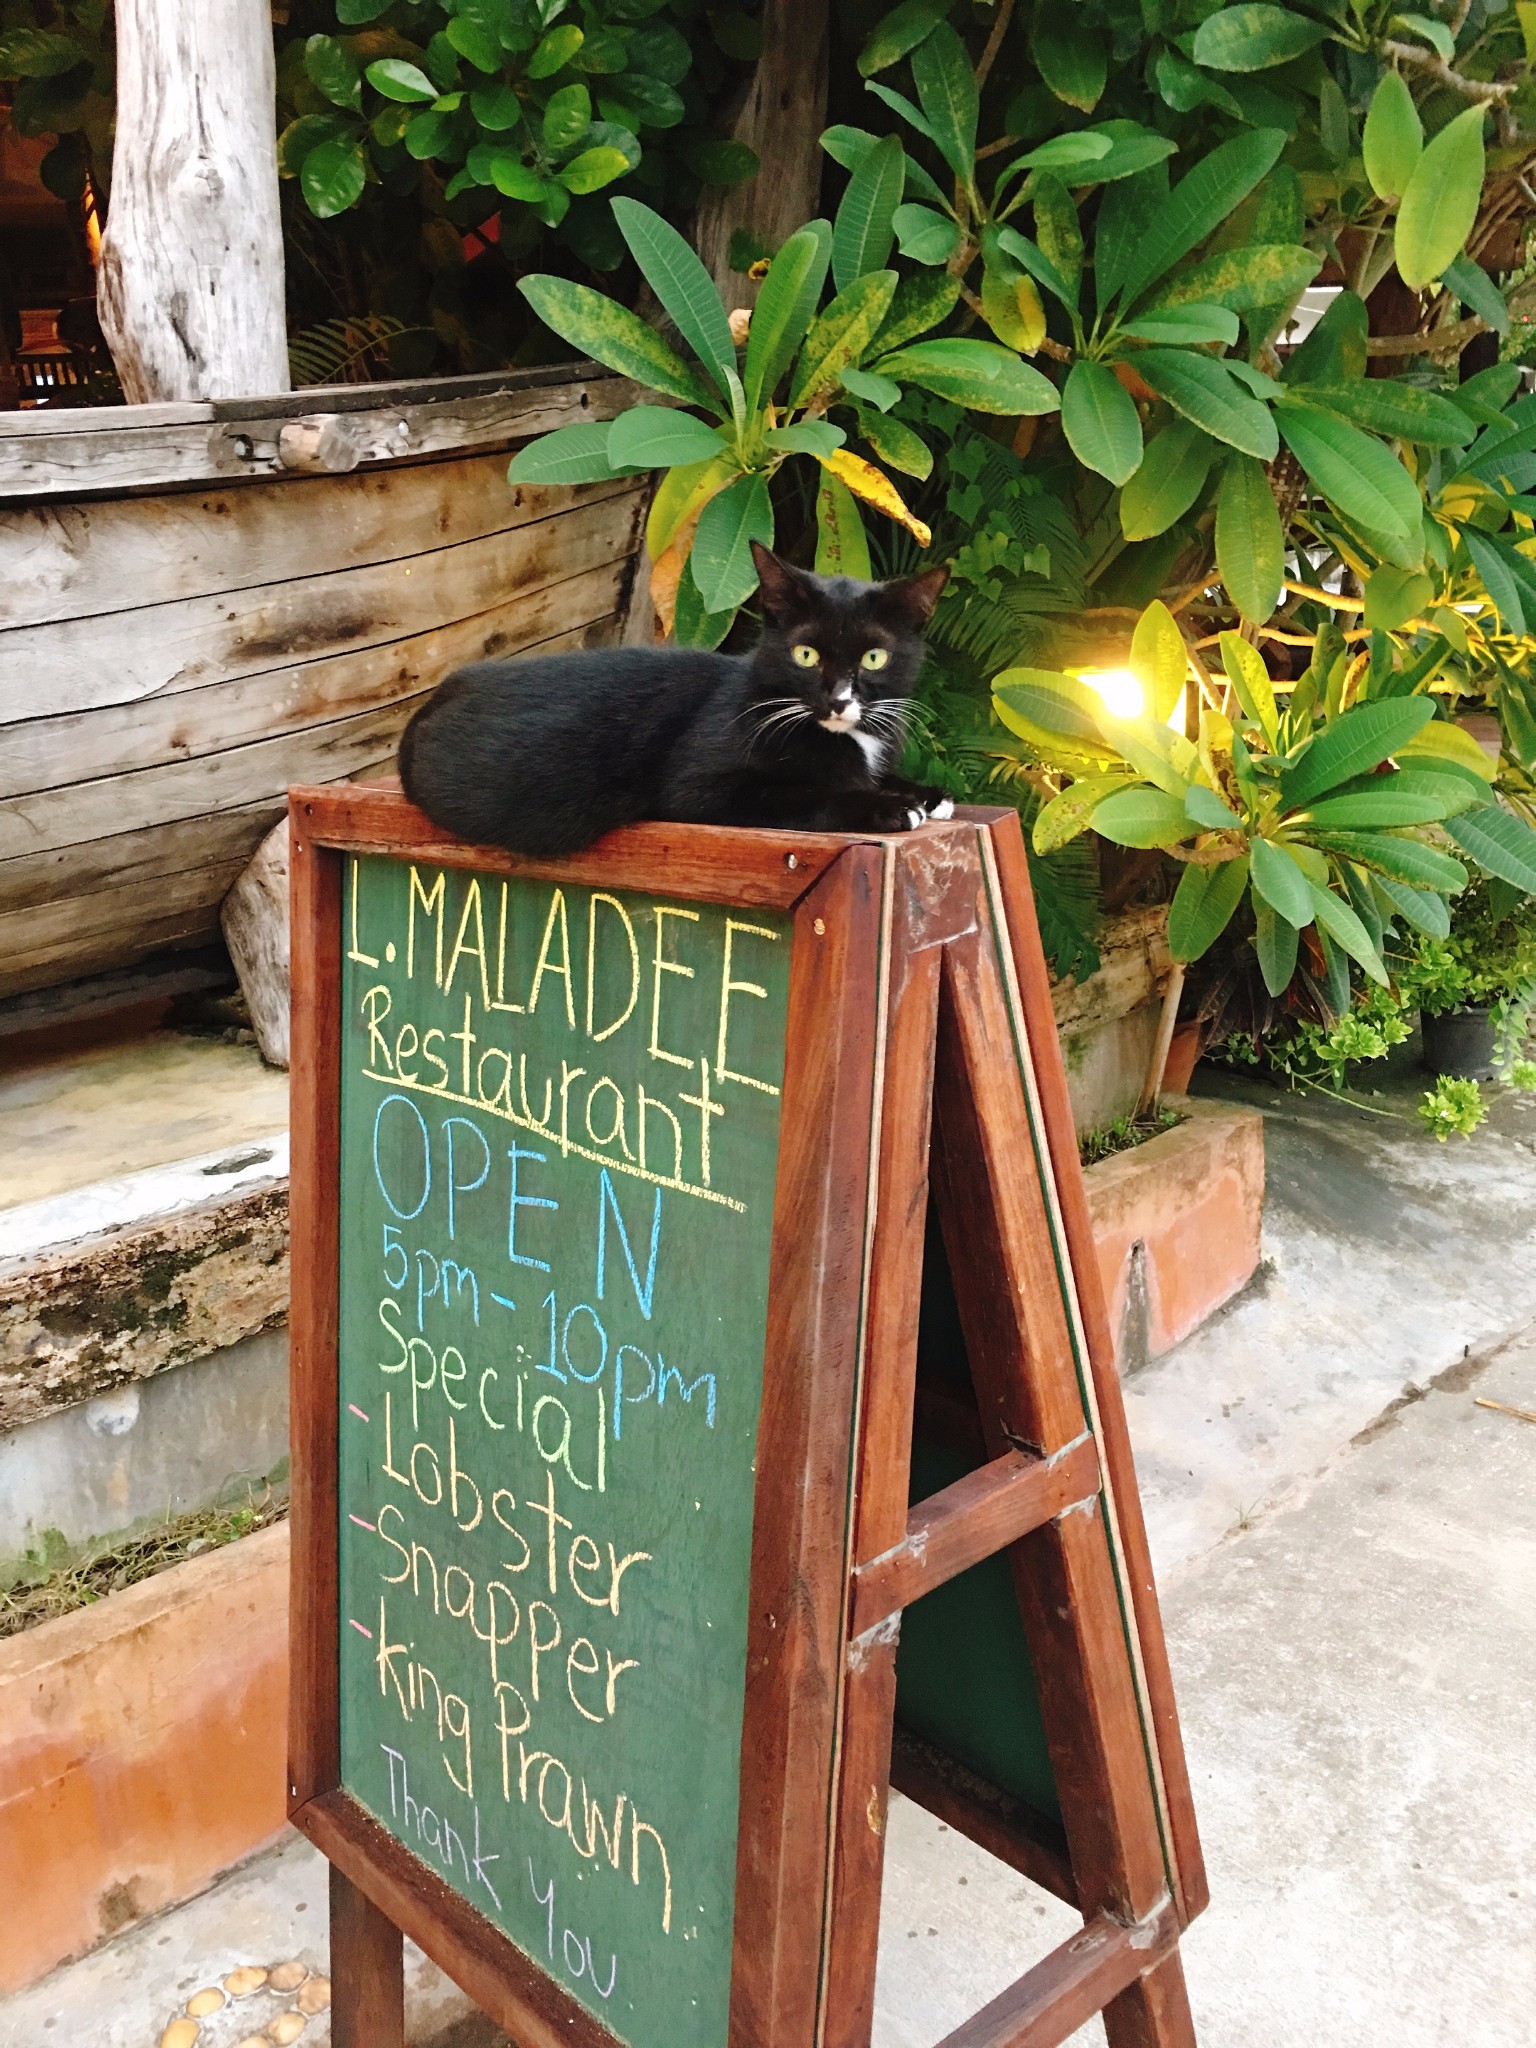 L.MALADEE
Restaurant
OPEN
5pm - 10pm
Special
- Lobster
- Snapper
- king Prawn
Thank you